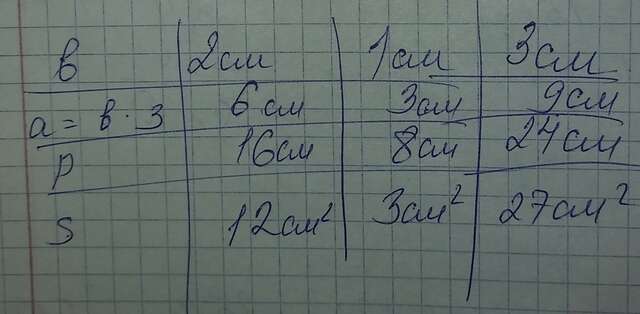 в 2см 1см 3см
a = в · 3 6см 3см 9см
P 16см 8см 24см
S 12см² 3см² 27см²